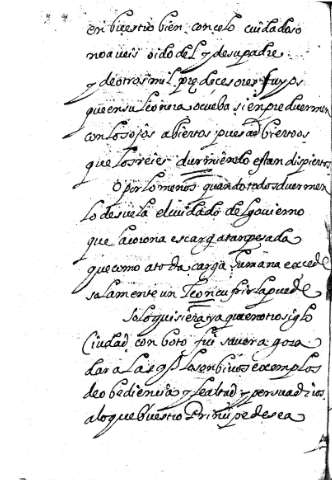 en buestro bien con celo cuidadoso
no aveis oido del y de su padre
y de otros mil predecesores suyos
que en su leonera o cueba sienpre duermen
con los ojos abiertos pues adbierto os
que los reies durmiendo estan dispiertos
O por lo menos quando todos duermen
lo desvela el cuidado del govierno
que la corona es carga tan pesada
que como a toda carga humana excede
solamente un Teon sufrirla puede
Solo quisiera ya que en otro siglo
Ciudad con boto fui saver a gora
los bivos exemplos
de obediencia y lealtad y persuadiros
a lo que buestro Principe desea